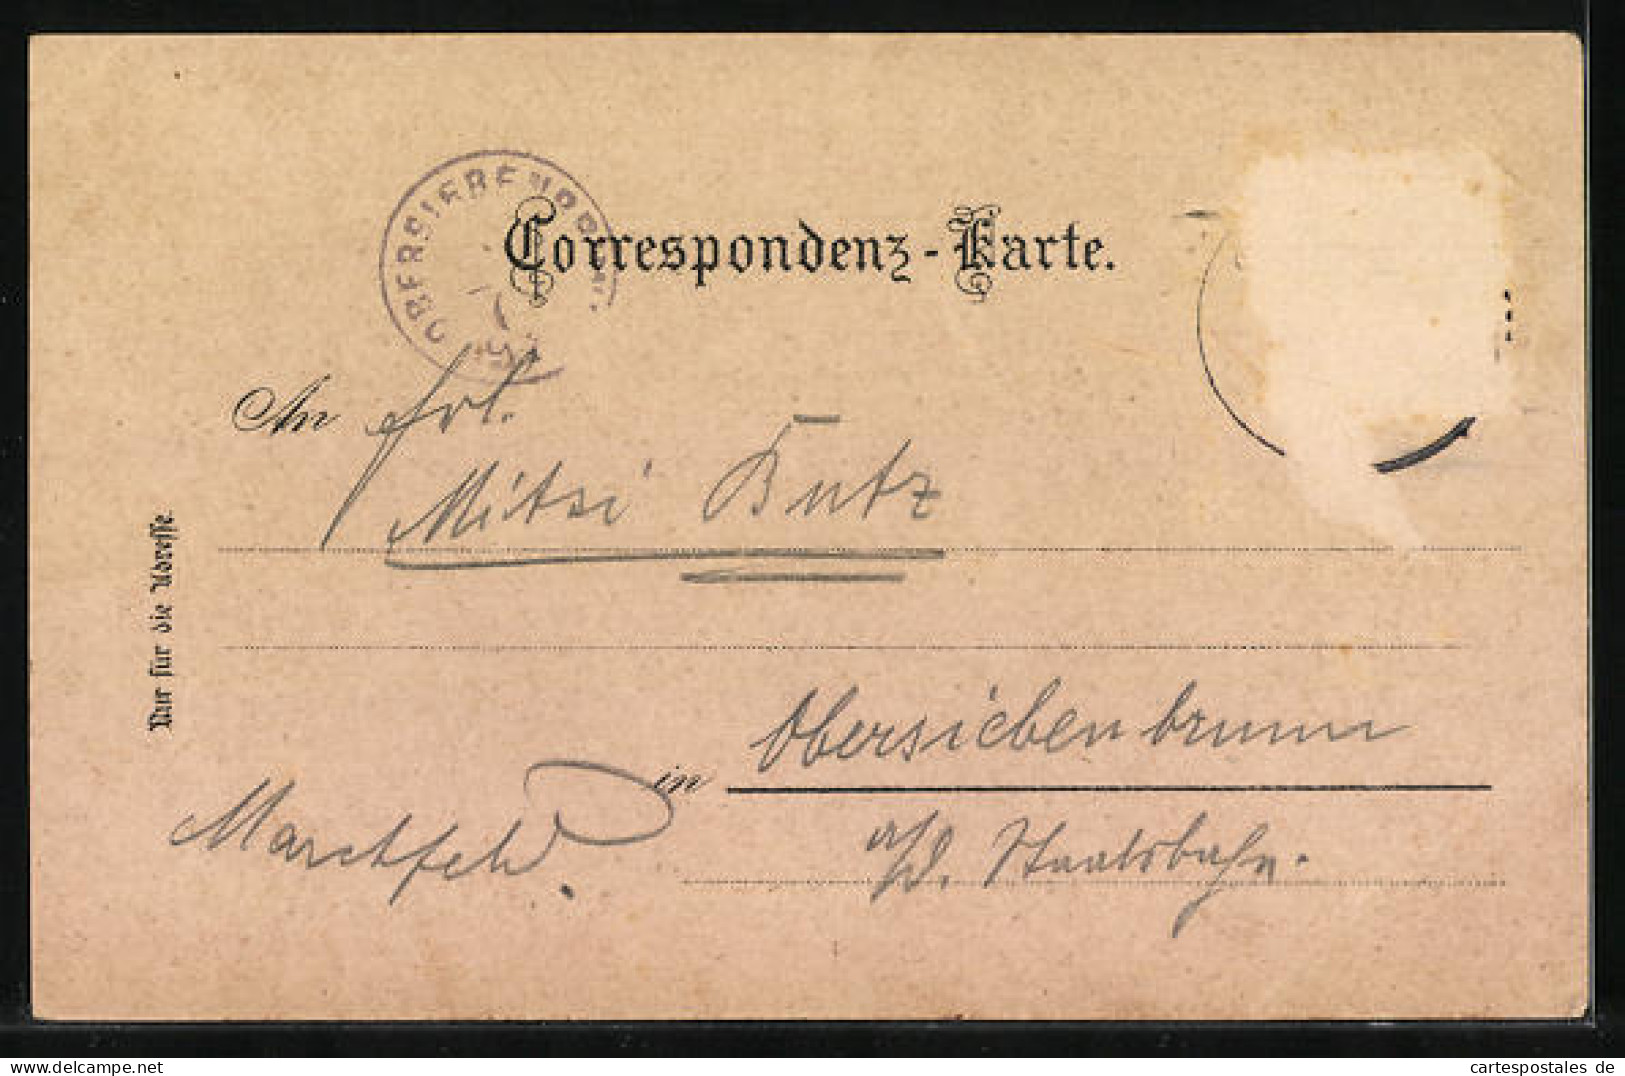 OBERSIEBENBRUNN
Correspondenz-Karte.
An Frl.
Mitsi Butz
Nur für die Adresse.
in Obersiebenbrunn
a/d. Staatsbahn.
Marchfeld.
cartespostales de